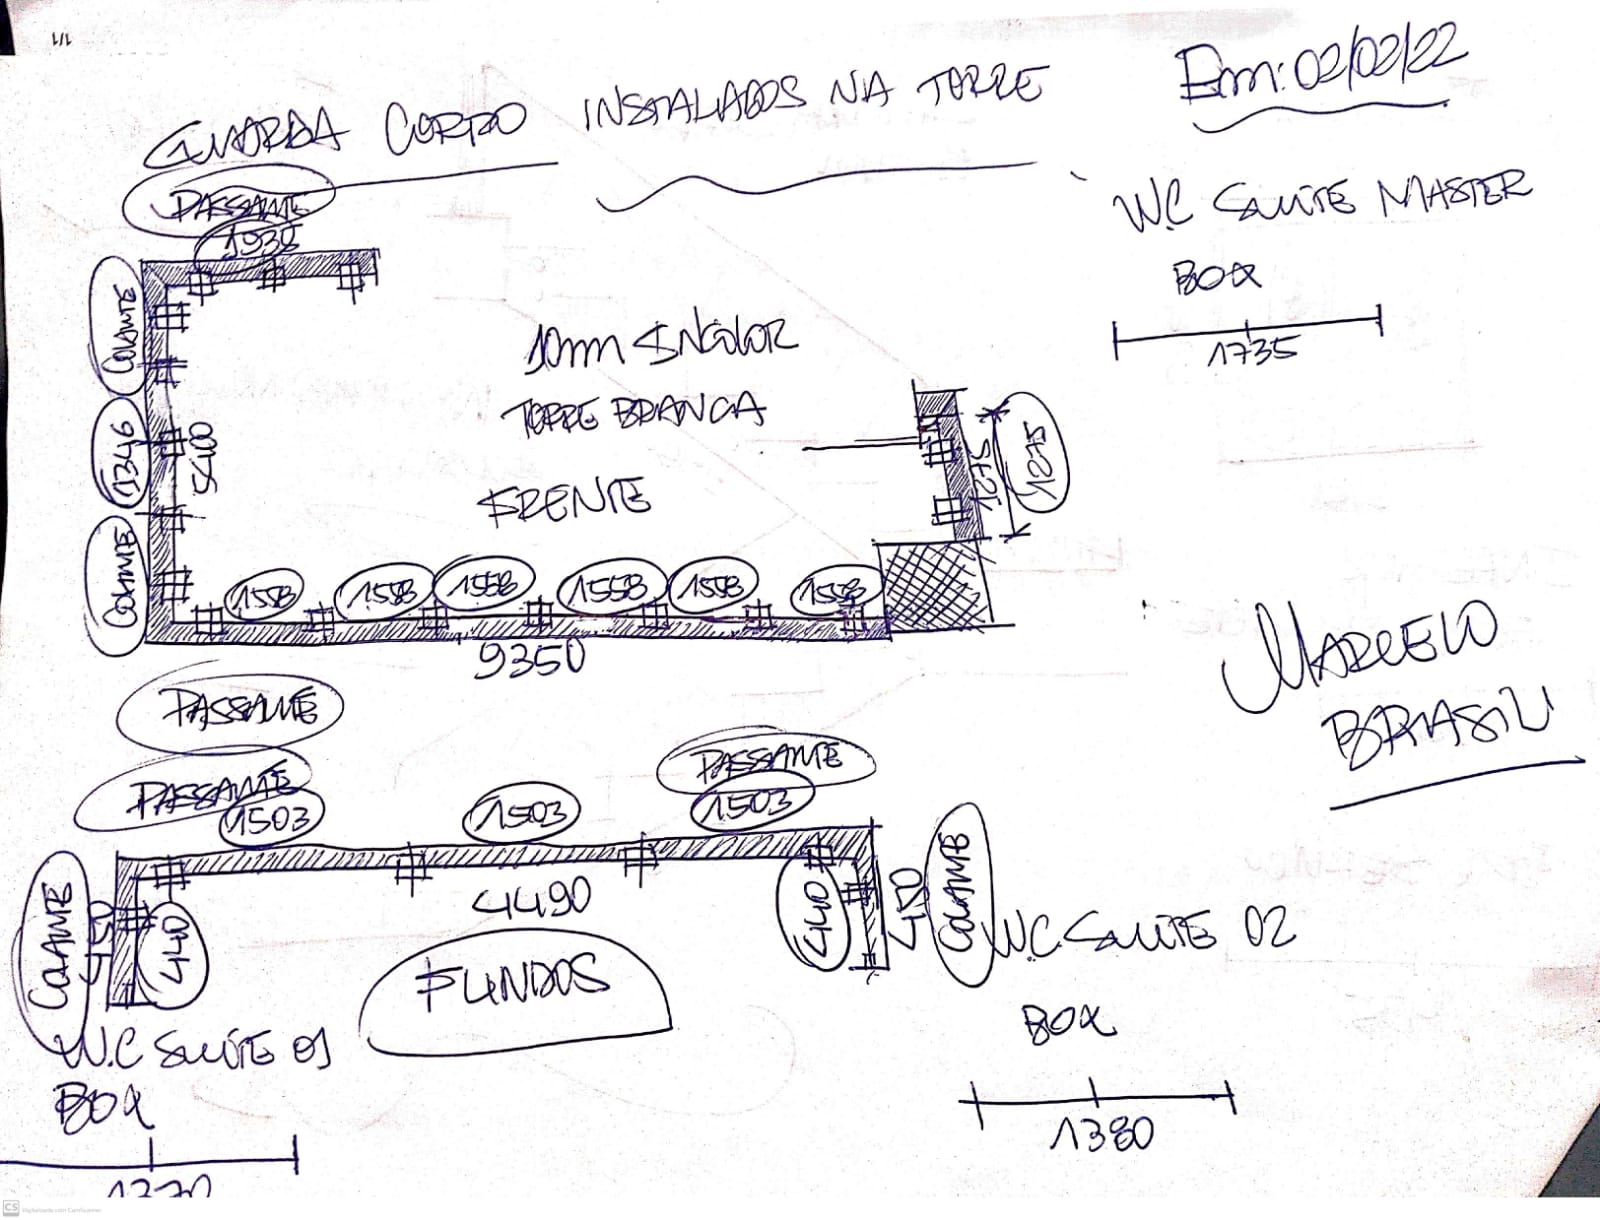 1/1
GUARDA CORPO INSTALADOS NA TORRE
Em: 02/02/22
PASSANTE
1938
W.C SUITE MASTER
BOX
1735
COLANTE
1346
5400
COLANTE
10mm INCOLOR
TORRE BRANCA
FRENTE
1275
1558 1558 1558 1558 1558 1558
9350
PASSANTE
MARCELO
BRASIL
PASSANTE
1503
1503
PASSANTE
1503
COLANTE
450
440
4490
440
450
COLANTE
FUNDOS
W.C SUITE 01
BOX
W.C. SUITE 02
BOX
1380
CS Digitalizado com CamScanner